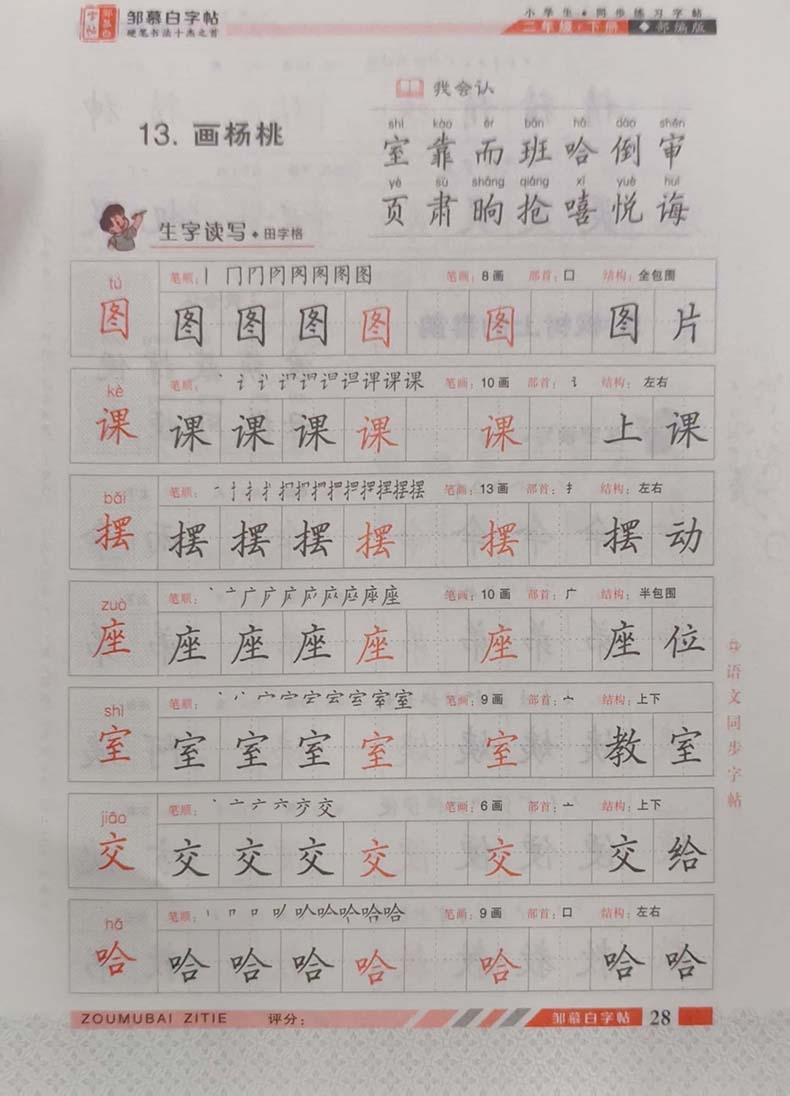 邹慕白字帖
硬笔书法十杰之首
小学生·同步练习字帖
二年级·下册 ◆部编版
13. 画杨桃
我会认
shì kào ér bān hā dǎo shěn
室 靠 而 班 哈 倒 审
yè sù shǎng qiǎng xī yuè huǐ
页 肃 晌 抢 嘻 悦 诲
生字读写·田字格
tú
图
笔顺： 丨 冂 图 笔画：8画 部首：口 结构：全包围
图 图 图 图 图 图 片
kè
课
笔顺： 课 笔画：10画 部首：讠 结构：左右
课 课 课 课 课 上 课
bǎi
摆
笔顺： 摆 笔画：13画 部首：扌 结构：左右
摆 摆 摆 摆 摆 摆 动
zuò
座
笔顺： 丶 亠 广 座 笔画：10画 部首：广 结构：半包围
座 座 座 座 座 座 位
shì
室
笔顺： 室 笔画：9画 部首：亠 结构：上下
室 室 室 室 室 教 室
jiāo
交
笔顺： 丶 亠 六 交 笔画：6画 部首：亠 结构：上下
交 交 交 交 交 交 给
hā
哈
笔顺： 哈 笔画：9画 部首：口 结构：左右
哈 哈 哈 哈 哈 哈 哈
语文同步字帖
ZOUMUBAI ZITIE 评分： 邹慕白字帖 28